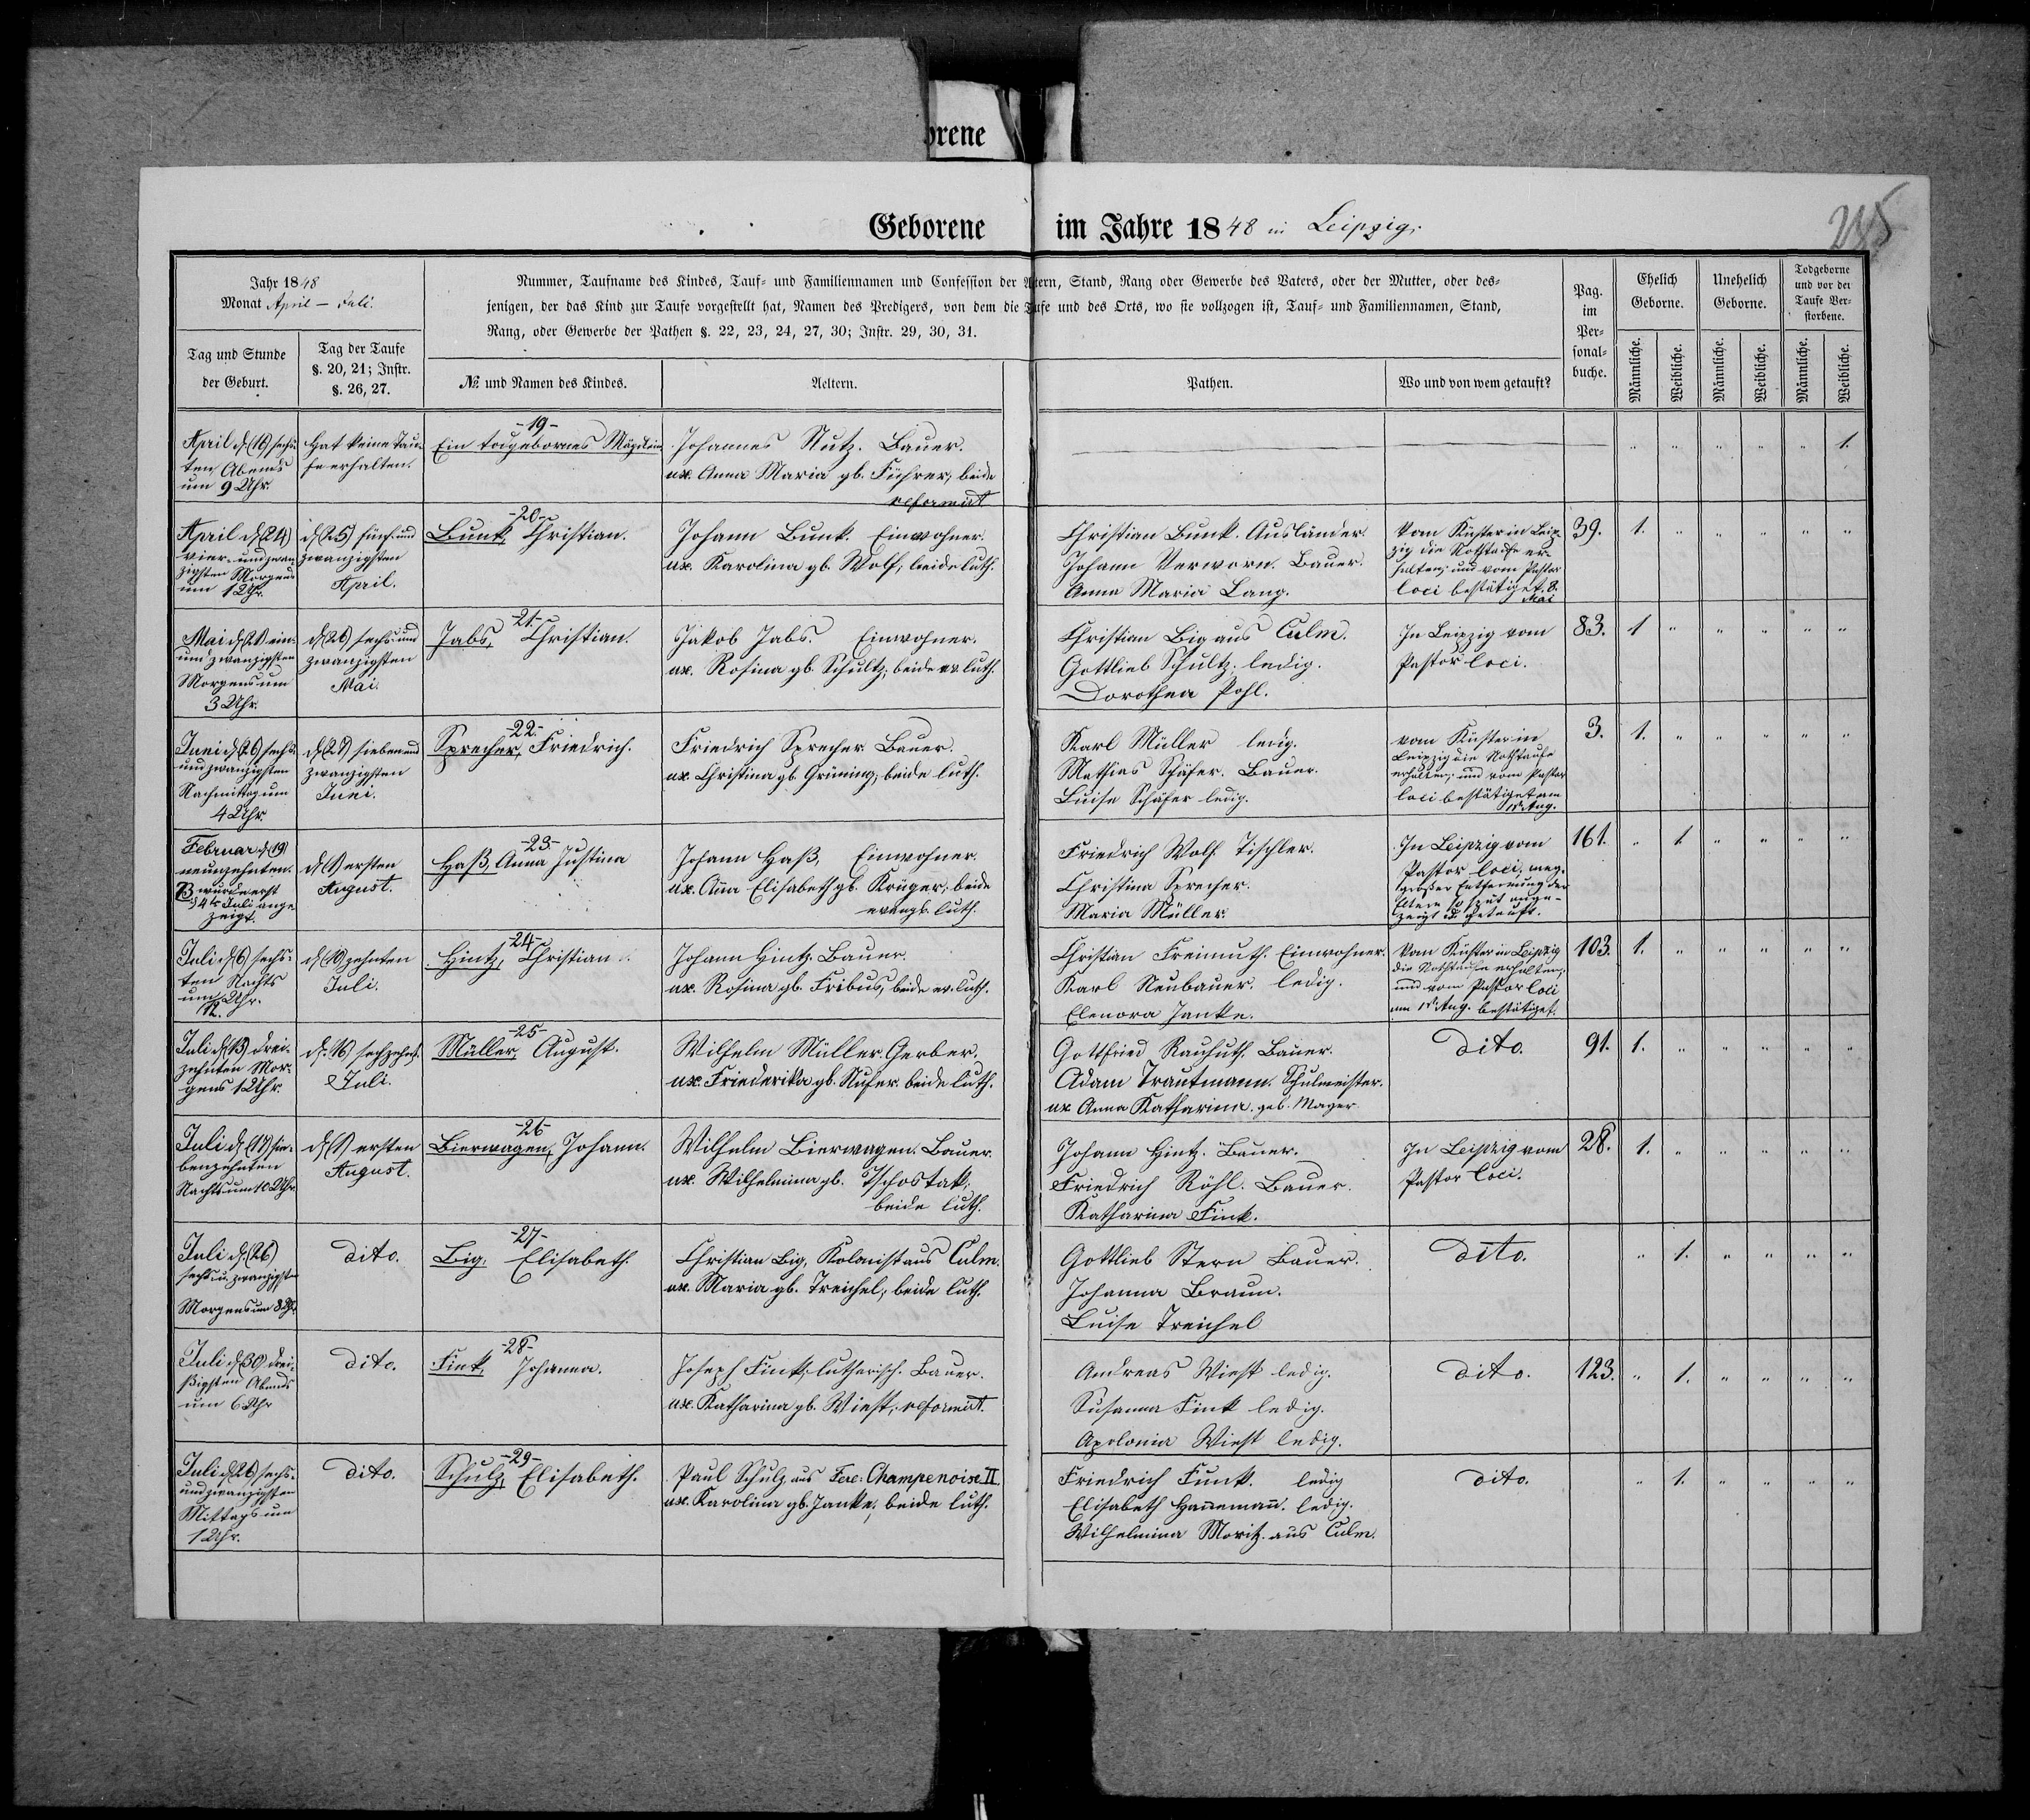 orene
Geborene im Jahre 1848 in Leipzig.
Jahr 1848
Monat April – Juli.
Nummer, Taufname des Kindes, Tauf- und Familiennamen und Confession der Aeltern, Stand, Rang oder Gewerbe des Vaters, oder der Mutter, oder des-
jenigen, der das Kind zur Taufe vorgestellt hat, Namen des Predigers, von dem die Taufe und des Orts, wo sie vollzogen ist, Tauf- und Familiennamen, Stand,
Rang, oder Gewerbe der Pathen §. 22, 23, 24, 27, 30; Instr. 29, 30, 31.
Pag.
im
Per-
sonal-
buche.
Ehelich
Geborne.
Unehelich
Geborne.
Todgeborne
und vor der
Taufe Ver-
storbene.
Tag und Stunde
der Geburt.
Tag der Taufe
§. 20, 21; Instr.
§. 26, 27.
№ und Namen des Kindes.
Aeltern.
Pathen.
Wo und von wem getauft?
Männliche.
Weibliche.
Männliche.
Weibliche.
Männliche.
Weibliche.
April d. (16) sechs-
ten Abends
um 9 Uhr.
Hat keine Tau-
fe erhalten.
-19-
Ein todgebornes Mägdlein
Johannes Nutz. Bauer.
ux. Anna Maria gb. Führer, beide
reformirt
1.
April d. (24)
vier- und zwan-
zigsten Morgens
um 1 Uhr.
d. (25) fünf- und
zwanzigsten
April.
-20-
Bunk, Christian.
Johann Bunk. Einwohner.
ux. Karolina gb. Wolf, beide luth.
Christian Bunk. Ausländer.
Johann Verworn. Bauer.
Anna Maria Lang.
Vom Küster in Leip-
zig die Nothtaufe er-
halten, und vom Pastor
loci bestätiget. 8.
Mai
39.
1.
Mai d. (21) ein-
und zwanzigsten
Morgens um
3 Uhr.
d. (26) sechs und
zwanzigsten
Mai.
-21-
Jabs, Christian.
Jakob Jabs. Einwohner.
ux. Rosina gb. Schultz, beide ev. luth.
Christian Big aus Culm.
Gottlieb Schultz. ledig.
Dorothea Pohl.
In Leipzig vom
Pastor loci.
83.
1
Juni d. (26) sechs-
und zwanzigsten
Nachmittag um
4 Uhr.
d. (27) sieben und
zwanzigsten
Juni.
-22-
Sprecher, Friedrich.
Friedrich Sprecher. Bauer.
ux. Christina gb. Grüning, beide luth.
Karl Müller ledig.
Mathias Schäfer. Bauer.
Luise Schäfer ledig.
vom Küster in
Leipzig die Nothtaufe
erhalten, und vom Pastor
loci bestätiget am
1t. Aug.
3.
1.
Februar d. (19)
neunzehnten.
NB wurde erst
d. 4t. Juli ange-
zeigt.
d. (1) ersten
August.
-23-
Haß, Anna Justina
Johann Haß, Einwohner.
ux. Anna Elisabeth gb. Krüger, beide
evangl. luth.
Friedrich Wolf. Tischler.
Christina Sprecher.
Maria Müller.
In Leipzig vom
Pastor loci, weg.
großer Entfernung der
Eltern so spät ange-
zeigt u. getauft.
161.
1
Juli d. (6) sechs-
ten Nachts
um Uhr.
12.
d. (10) zehnten
Juli.
-24-
Hintz, Christian.
Johann Hintz. Bauer.
ux. Rosina gb. Fribus, beide ev. luth.
Christian Freimuth. Einwohner.
Karl Neubauer. ledig.
Elenora Janke.
Vom Küster in Leipzig
die Nothtaufe erhalten,
und vom Pastor loci
am 1t. Aug. bestätiget.
103.
1.
Juli d. (13) drei-
zehnten Mor-
gens 1 Uhr.
d. (16) sechzehnt.
Juli.
-25-
Müller, August.
Wilhelm Müller. Gerber.
ux. Friederika gb. Nufer. beide luth.
Gottfried Rauhuth. Bauer.
Adam Trautmann. Schulmeister.
ux Anna Katharina. geb. Mayer
dito.
91.
1.
Juli d. (17) sie-
benzehnten
Nachts um 10 Uhr.
d. (1) ersten
August.
-26-
Bierwagen, Johann.
Wilhelm Bierwagen. Bauer.
ux. Wilhelmina gb. Tschostak,
beide luth.
Johann Hintz. Bauer.
Friedrich Röhl. Bauer.
Katharina Fink.
In Leipzig vom
Pastor loci.
28.
1.
Juli d. (26)
sechs u. zwanzigsten
Morgens um 8 Uhr
dito.
-27-
Big, Elisabeth.
Christian Big, Kolonist aus Culm.
ux. Maria gb. Treichel, beide luth.
Gottlieb Stern Bauer.
Johanna Braun.
Luise Treichel
dito.
1.
Juli d. (30) drei-
ßigsten Abends
um 6 Uhr
dito.
-28-
Fink, Johanna.
Joseph Fink, lutherisch. Bauer.
ux. Katharina gb. Wiest, reformirt.
Andreas Wiest ledig.
Susanna Fink ledig.
Apolonia Wiest ledig.
dito.
123.
1.
Juli d. (26) sechs-
und zwanzigsten
Mittags um
1 Uhr.
dito.
-29-
Schulz, Elisabeth.
Paul Schulz aus Fere: Champenoise II.
ux. Karolina gb. Janke, beide luth.
Friedrich Funk. ledig
Elisabeth Hannemann. ledig.
Wilhelmina Moritz. aus Culm.
dito.
1.